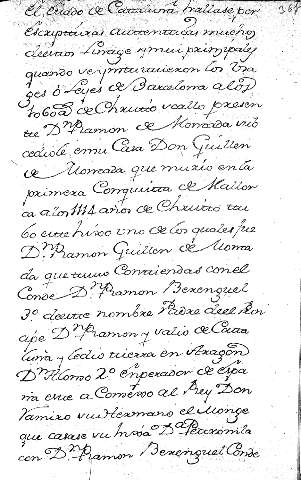 el Condado de Cataluña hallase por 367
escripturas autenticas muchos
deeste Linage y mui principales
quando se instituieron los Usa
ges o Leyes de Barcelona a los
1060 a.s de Christo vcallo presen
te D.n Ramon de Moncada suc
cediole en su Casa Don Guillen
de Moncada que murio en la
primera Conquista de Mallor
ca a los 1114 años de Christo tu
bo este hixos uno de los quales fue
D.n Ramon Guillen de Monca
da que tuuo Contiendas con el
Conde D.n Ramon Berenguel
3.o de este nombre Padre de el Prin
cipe D.n Ramon y salio de Cata
luña y le dio tierra en Aragon
D.n Alonso 2.o enperador de espa
ña este a Consejo al Rey Don
Ramiro su Hermano el Monge
que casase su hixa D.a Petronila
con D.n Ramon Berenguel Conde